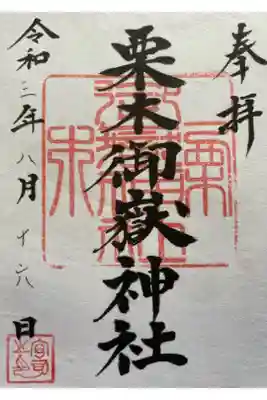 奉拝
栗木御嶽神社
令和三年八月十六日